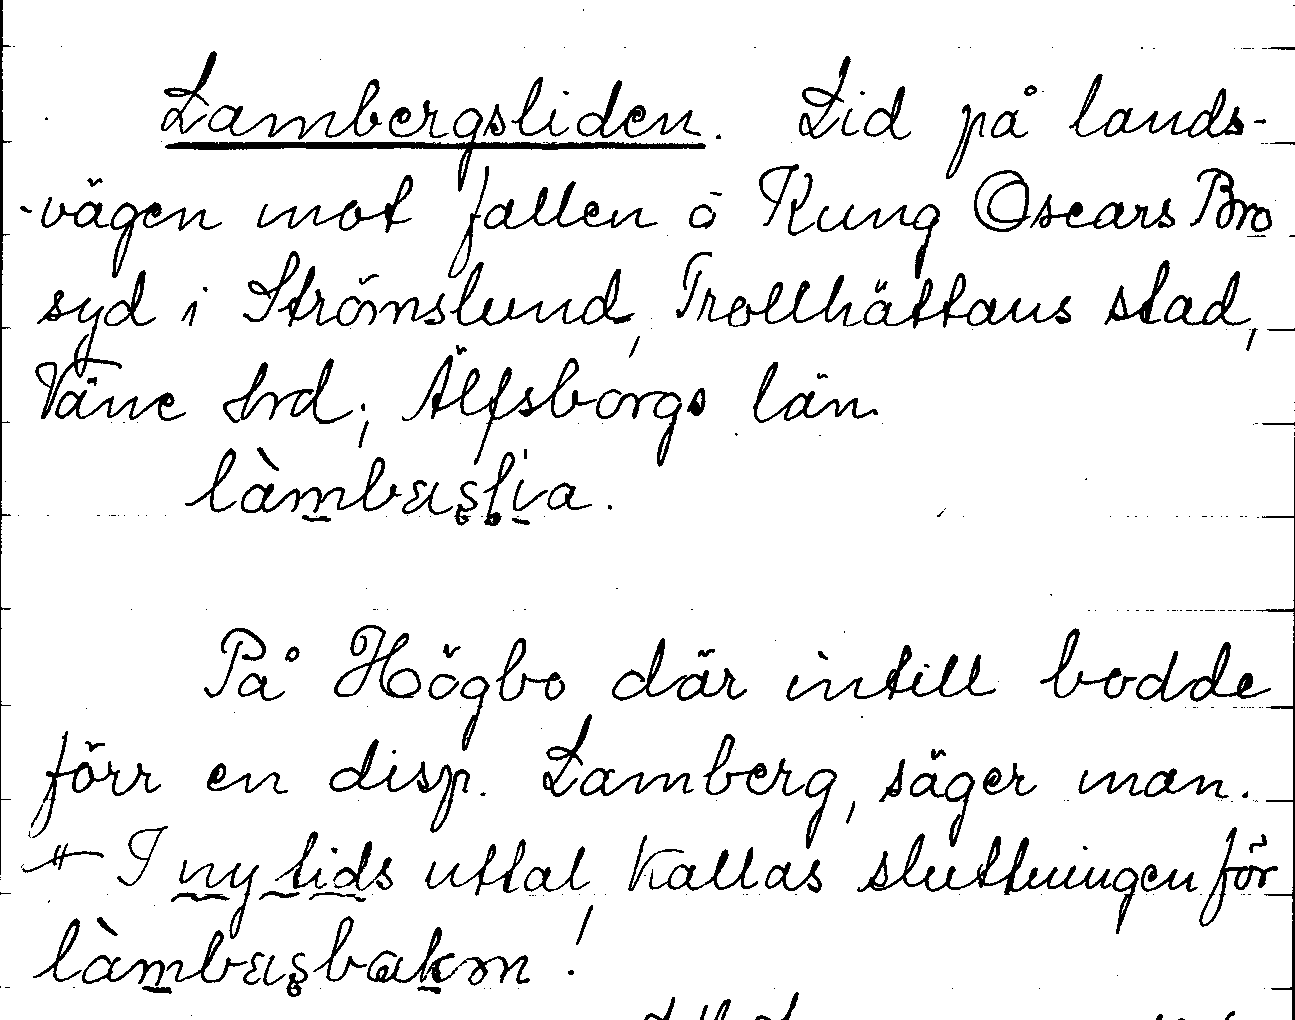 Lambergsliden. Lid på lands-
-vägen mot fallen o Kung Oscars Bro
syd i Strömslund, Trollhättans stad,
Väne hrd, Älfsborgs län.
På Högbo där intill bodde
förr en disp. Lamberg, säger man.
I ny tids uttal kallas sluttningen för